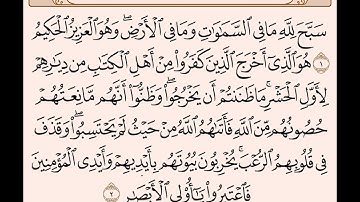 سَبَّحَ لِلَّهِ مَا فِي السَّمَٰوَٰتِ وَمَا فِي الْأَرْضِ ۖ وَهُوَ الْعَزِيزُ الْحَكِيمُ
١ هُوَ الَّذِي أَخْرَجَ الَّذِينَ كَفَرُوا مِنْ أَهْلِ الْكِتَٰبِ مِن دِيَٰرِهِمْ
لِأَوَّلِ الْحَشْرِ ۚ مَا ظَنَنتُمْ أَن يَخْرُجُوا ۖ وَظَنُّوا أَنَّهُم مَّانِعَتُهُمْ
حُصُونُهُم مِّنَ اللَّهِ فَأَتَىٰهُمُ اللَّهُ مِنْ حَيْثُ لَمْ يَحْتَسِبُوا ۖ وَقَذَفَ
فِي قُلُوبِهِمُ الرُّعْبَ ۚ يُخْرِبُونَ بُيُوتَهُم بِأَيْدِيهِمْ وَأَيْدِي الْمُؤْمِنِينَ
فَاعْتَبِرُوا يَٰٓأُولِي الْأَبْصَٰرِ ٢